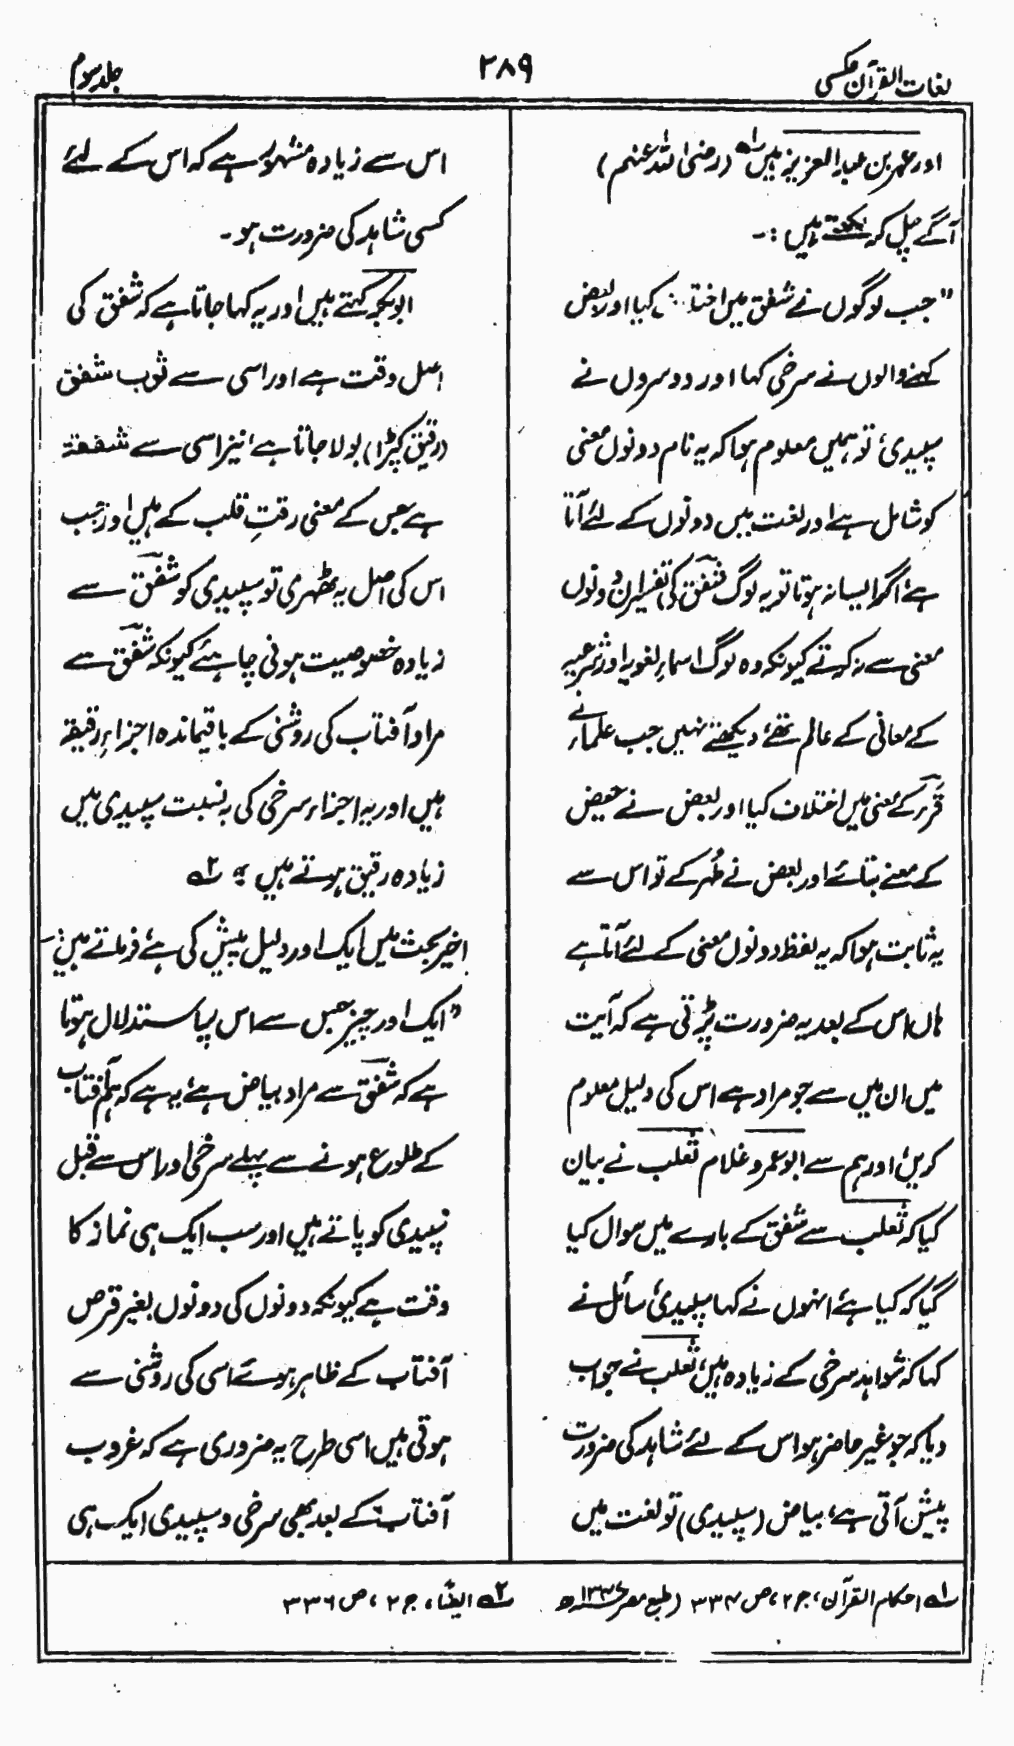 لغات القرآن عکسی
۲۸۹
جلد سوم
اور عمر بن عبدالعزیز ہیں لہ (رضی اللہ عنہم)
آگے چل کر لکھتے ہیں :۔
"جب لوگوں نے شفق میں اختلاف کیا اور بعض
کہنے والوں نے سرخی کہا اور دوسروں نے
سپیدی تو ہمیں معلوم ہوا کہ یہ نام دونوں معنی
کو شامل ہے اور لغت میں دونوں کے لئے آتا
ہے اگر ایسا نہ ہوتا تو یہ لوگ شفق کی تفسیر ان دونوں
معنی سے نہ کرتے کیونکہ وہ لوگ اسماءِ لغویہ اور شرعیہ
کے معانی کے عالم تھے، دیکھتے نہیں جب علماء نے
قرء کے معنی میں اختلاف کیا اور بعض نے حیض
کے معنے بتائے اور بعض نے طُہر کے تو اس سے
یہ ثابت ہوا کہ یہ لفظ دونوں معنی کے لئے آتا ہے
ہاں اس کے بعد یہ ضرورت پڑتی ہے کہ آیت
میں ان میں سے جو مراد ہے اس کی دلیل معلوم
کریں، اور ہم سے ابو عمرو غلام ثعلب نے بیان
کیا کہ ثعلب سے شفق کے بارے میں سوال کیا
گیا کہ کیا ہے، انہوں نے کہا سپیدی، سائل نے
کہا کہ شواہد سرخی کے زیادہ ہیں، ثعلب نے جواب
دیا کہ جو غیر حاضر ہو اس کے لئے شاہد کی ضرورت
پیش آتی ہے، بیاض (سپیدی) تو لغت میں
اس سے زیادہ مشہور ہے کہ اس کے لئے
کسی شاہد کی ضرورت ہو۔
ابوبکر کہتے ہیں اور یہ کہا جاتا ہے کہ شفق کی
اصل وقت ہے اور اسی سے ثوب شفق
(رقیق کپڑا) بولا جاتا ہے، نیز اسی سے شفقة
ہے جس کے معنی رقتِ قلب کے ہیں اور جب
اس کی اصل یہ ٹھہری تو سپیدی کو شفق سے
زیادہ خصوصیت ہونی چاہئے کیونکہ شفق سے
مراد آفتاب کی روشنی کے باقیماندہ اجزاءِ رقیقہ
ہیں اور یہ اجزاء سرخی کی بہ نسبت سپیدی میں
زیادہ رقیق ہوتے ہیں" ۲ہ
اخیر بحث میں ایک اور دلیل پیش کی ہے، فرماتے ہیں:۔
"ایک اور چیز جس سے اس پر استدلال ہوتا
ہے کہ شفق سے مراد بیاض ہے، یہ ہے کہ ہم آفتاب
کے طلوع ہونے سے پہلے سرخی اور اس سے قبل
سپیدی کو پاتے ہیں اور سب ایک ہی نماز کا
وقت ہے کیونکہ دونوں کی دونوں بغیر قرص
آفتاب کے ظاہر ہوئے اسی کی روشنی سے
ہوتی ہیں اسی طرح یہ ضروری ہے کہ غروب
آفتاب کے بعد بھی سرخی و سپیدی ایک ہی
۱ہ احکام القرآن، ج ۲، ص ۳۳۴ (طبع مصر ۱۳۴۷ھ
۲ہ ایضًا، ج ۲، ص ۳۳۶